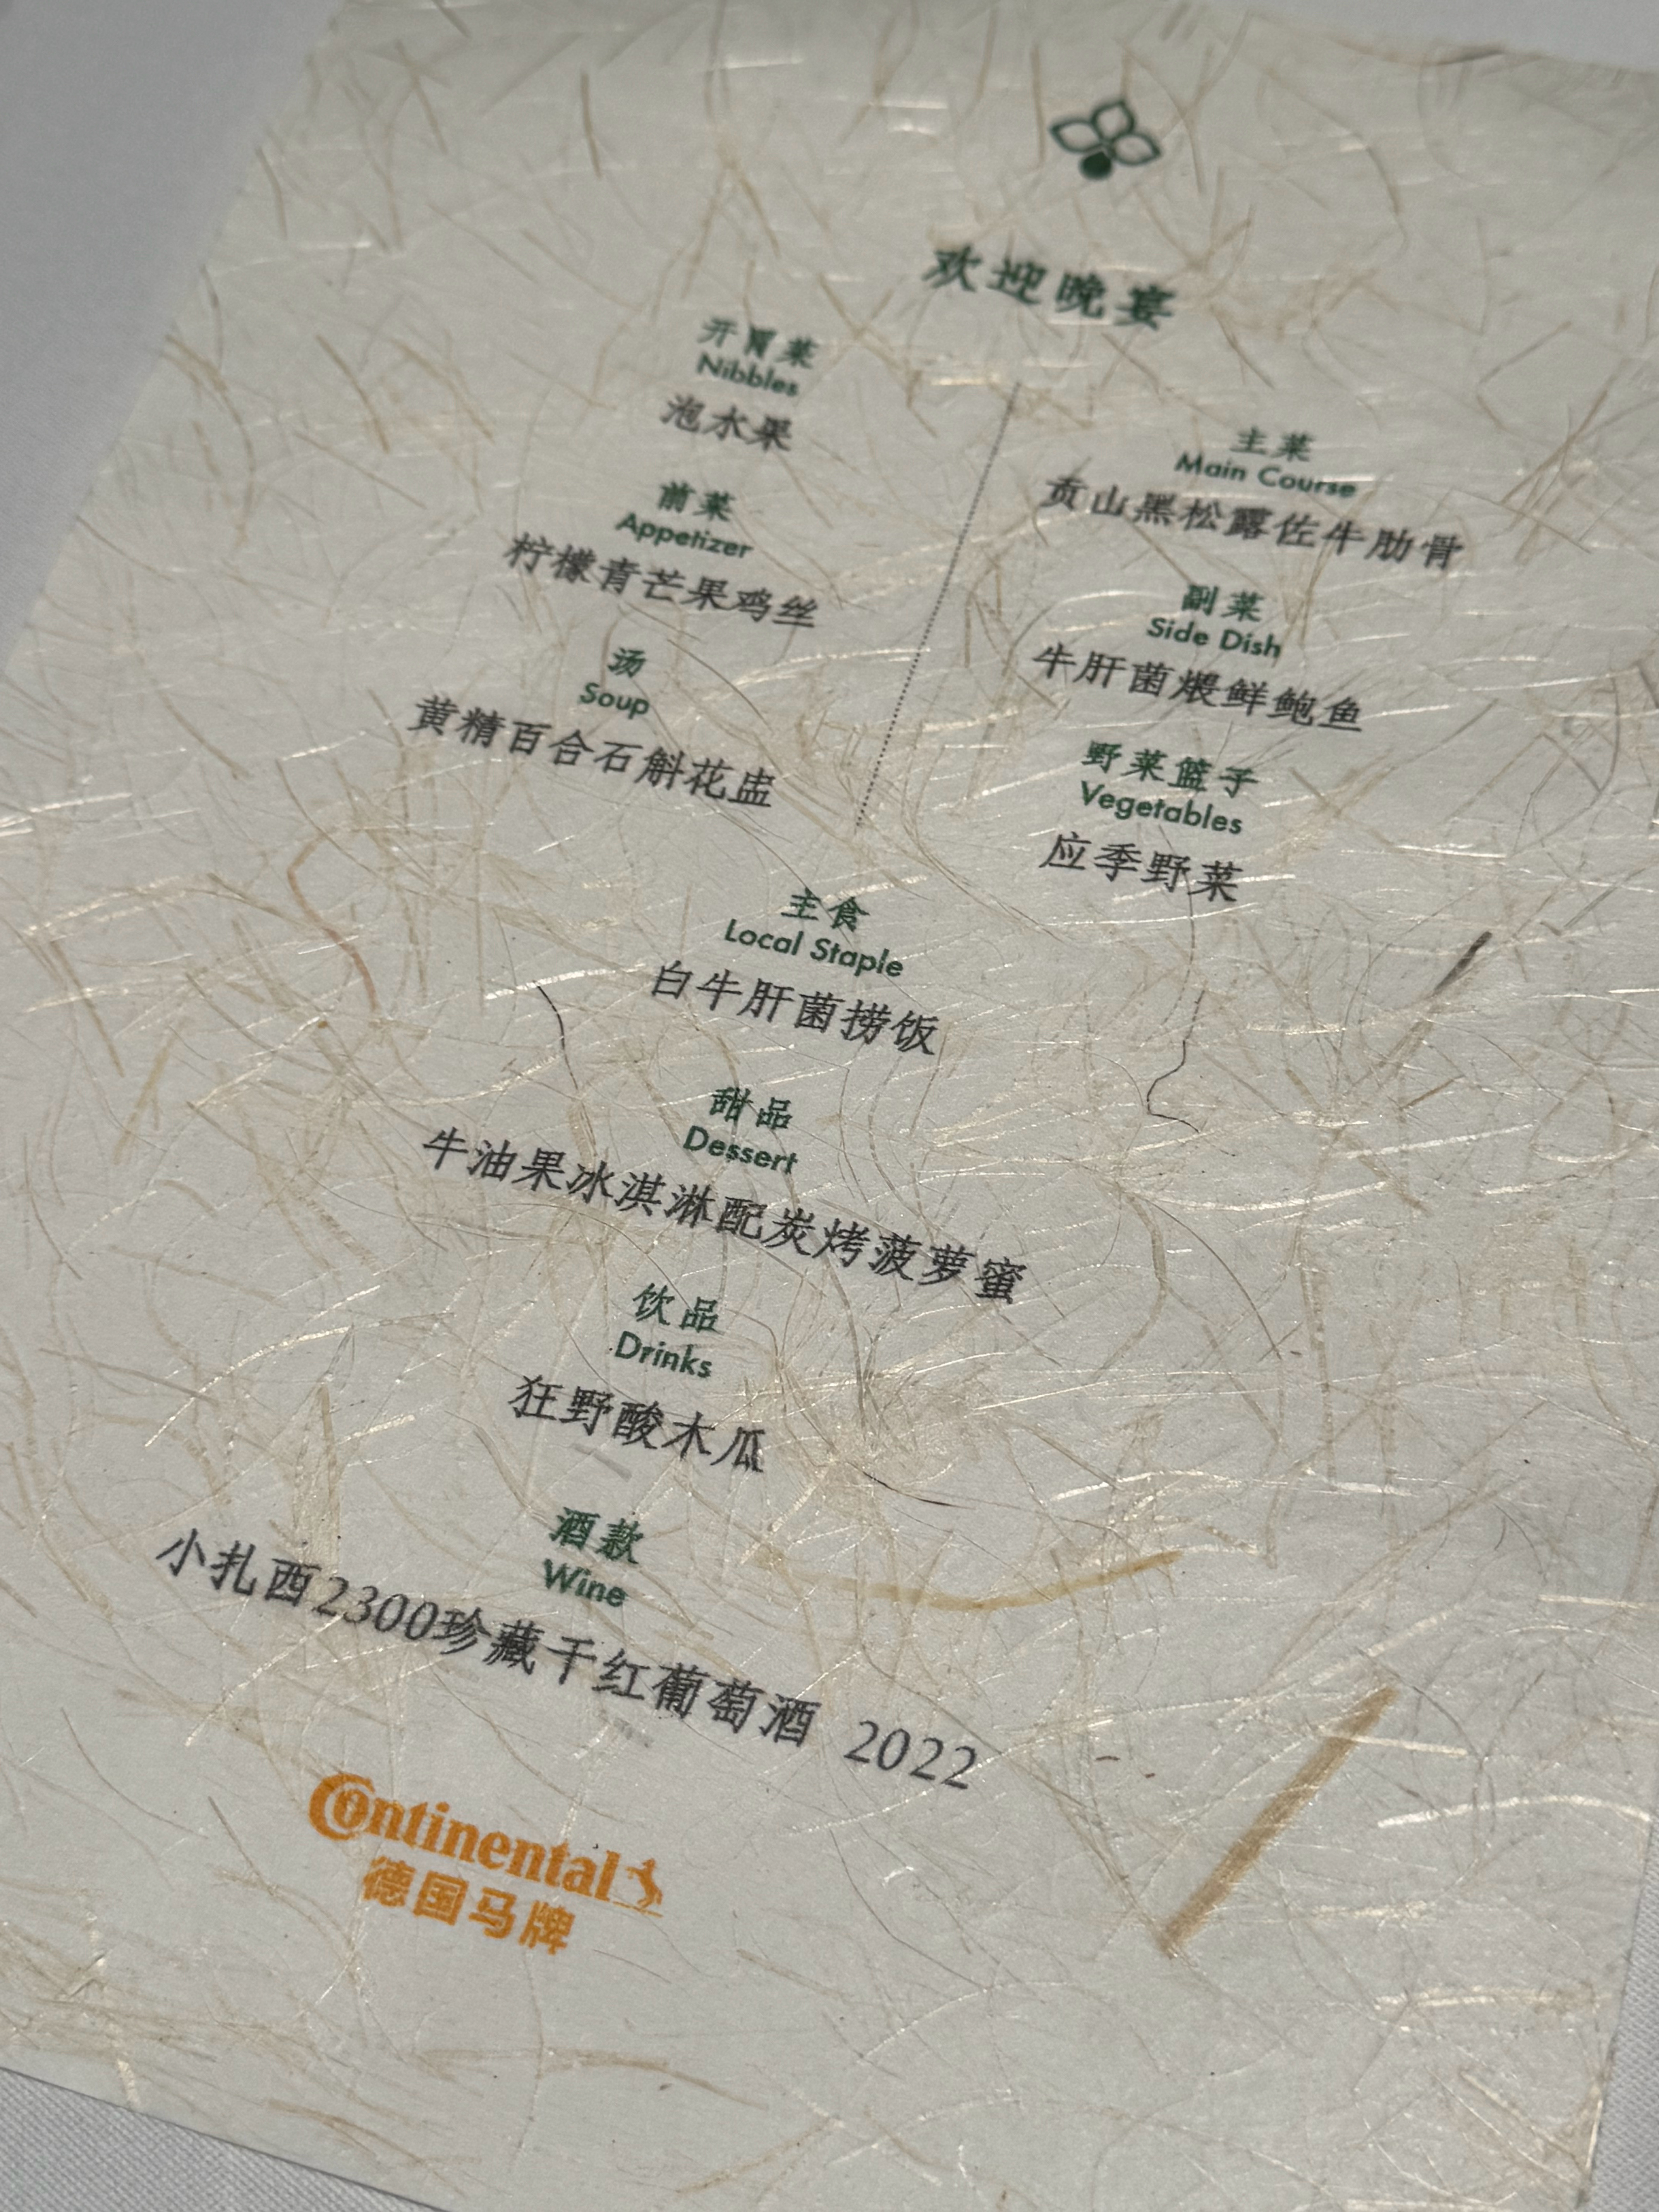 欢迎晚宴
开胃菜
Nibbles
泡水果
前菜
Appetizer
柠檬青芒果鸡丝
汤
Soup
黄精百合石斛花盅
主菜
Main Course
贡山黑松露佐牛肋骨
副菜
Side Dish
牛肝菌煨鲜鲍鱼
野菜篮子
Vegetables
应季野菜
主食
Local Staple
白牛肝菌捞饭
甜品
Dessert
牛油果冰淇淋配炭烤菠萝蜜
饮品
Drinks
狂野酸木瓜
酒款
Wine
小扎西2300珍藏干红葡萄酒 2022
Continental
德国马牌